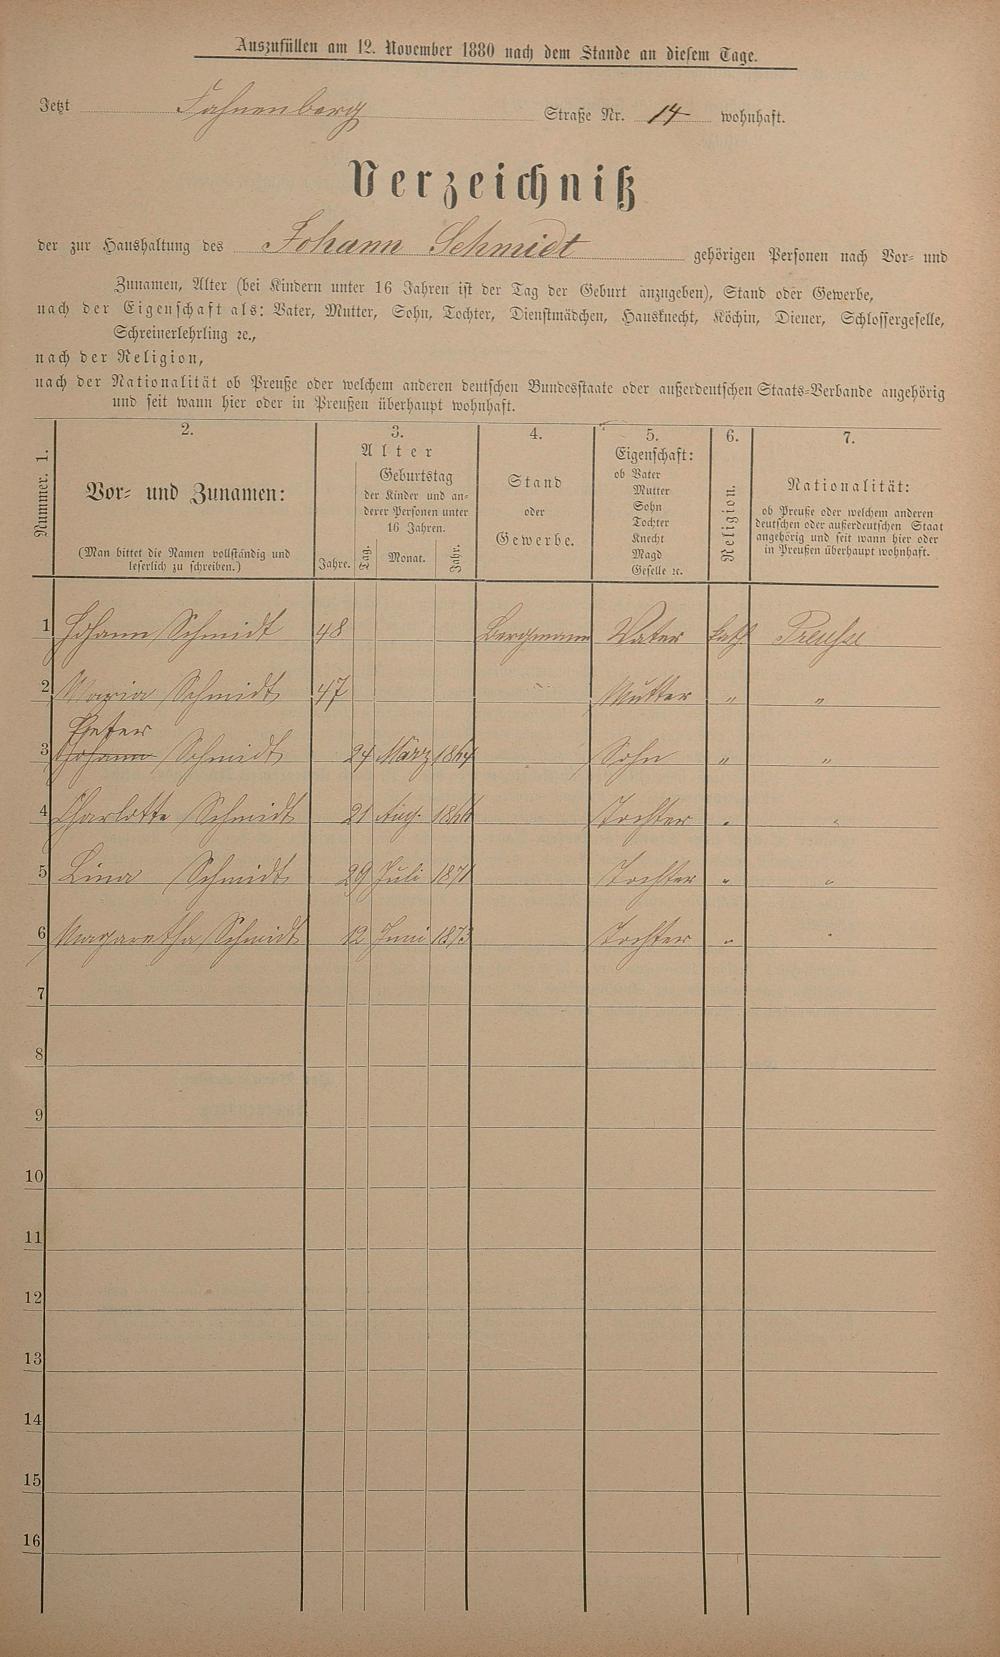 Auszufüllen am 12. November 1880 nach dem Stande an diesem Tage.
Jetzt Fahnenberg Straße Nr. 14 wohnhaft.
Verzeichniß
der zur Haushaltung des Johann Schmidt gehörigen Personen nach Vor- und
Zunamen, Alter (bei Kindern unter 16 Jahren ist der Tag der Geburt anzugeben), Stand oder Gewerbe,
nach der Eigenschaft als: Vater, Mutter, Sohn, Tochter, Dienstmädchen, Hausknecht, Köchin, Diener, Schlossergeselle,
Schreinerlehrling ꝛc.,
nach der Religion,
nach der Nationalität ob Preuße oder welchem anderen deutschen Bundesstaate oder außerdeutschen Staats-Verbande angehörig
und seit wann hier oder in Preußen überhaupt wohnhaft.
Nummer. 1.
2.
Vor- und Zunamen:
(Man bittet die Namen vollständig und
leserlich zu schreiben.)
3.
Alter
Jahre.
Geburtstag
der Kinder und an-
derer Personen unter
16 Jahren.
Tag. Monat. Jahr.
4.
Stand
oder
Gewerbe.
5.
Eigenschaft:
ob Vater
Mutter
Sohn
Tochter
Knecht
Magd
Geselle ꝛc.
6.
Religion.
7.
Nationalität:
ob Preuße oder welchem anderen
deutschen oder außerdeutschen Staat
angehörig und seit wann hier oder
in Preußen überhaupt wohnhaft.
1 Johann Schmidt 48 Bergmann Vater kath Preuße
2 Maria Schmidt 47 Mutter " "
Peter
3 Johann Schmidt 24 März 1864 Sohn " "
4 Charlotte Schmidt 21 Aug. 1866 Tochter " "
5 Lina Schmidt 29 Juli 1871 Tochter " "
6 Margaretha Schmidt 12 Juni 1873 Tochter " "
7
8
9
10
11
12
13
14
15
16